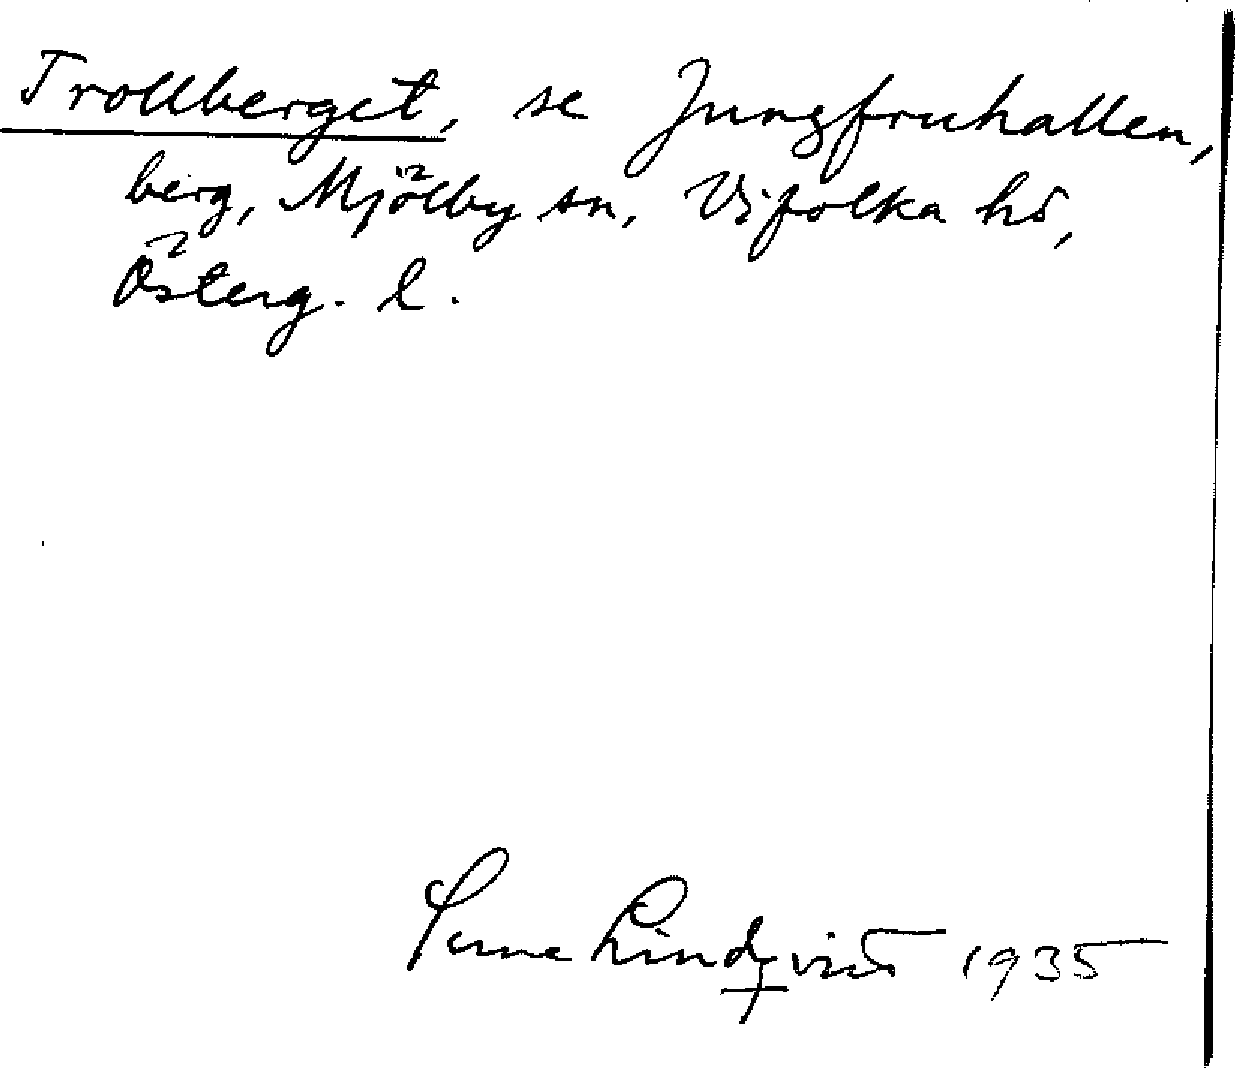 Trollberget, se Jungfruhallen,
berg, Mjölby sn, Vifolka hd,
Österg. l.
Sune Lindqvist 1935